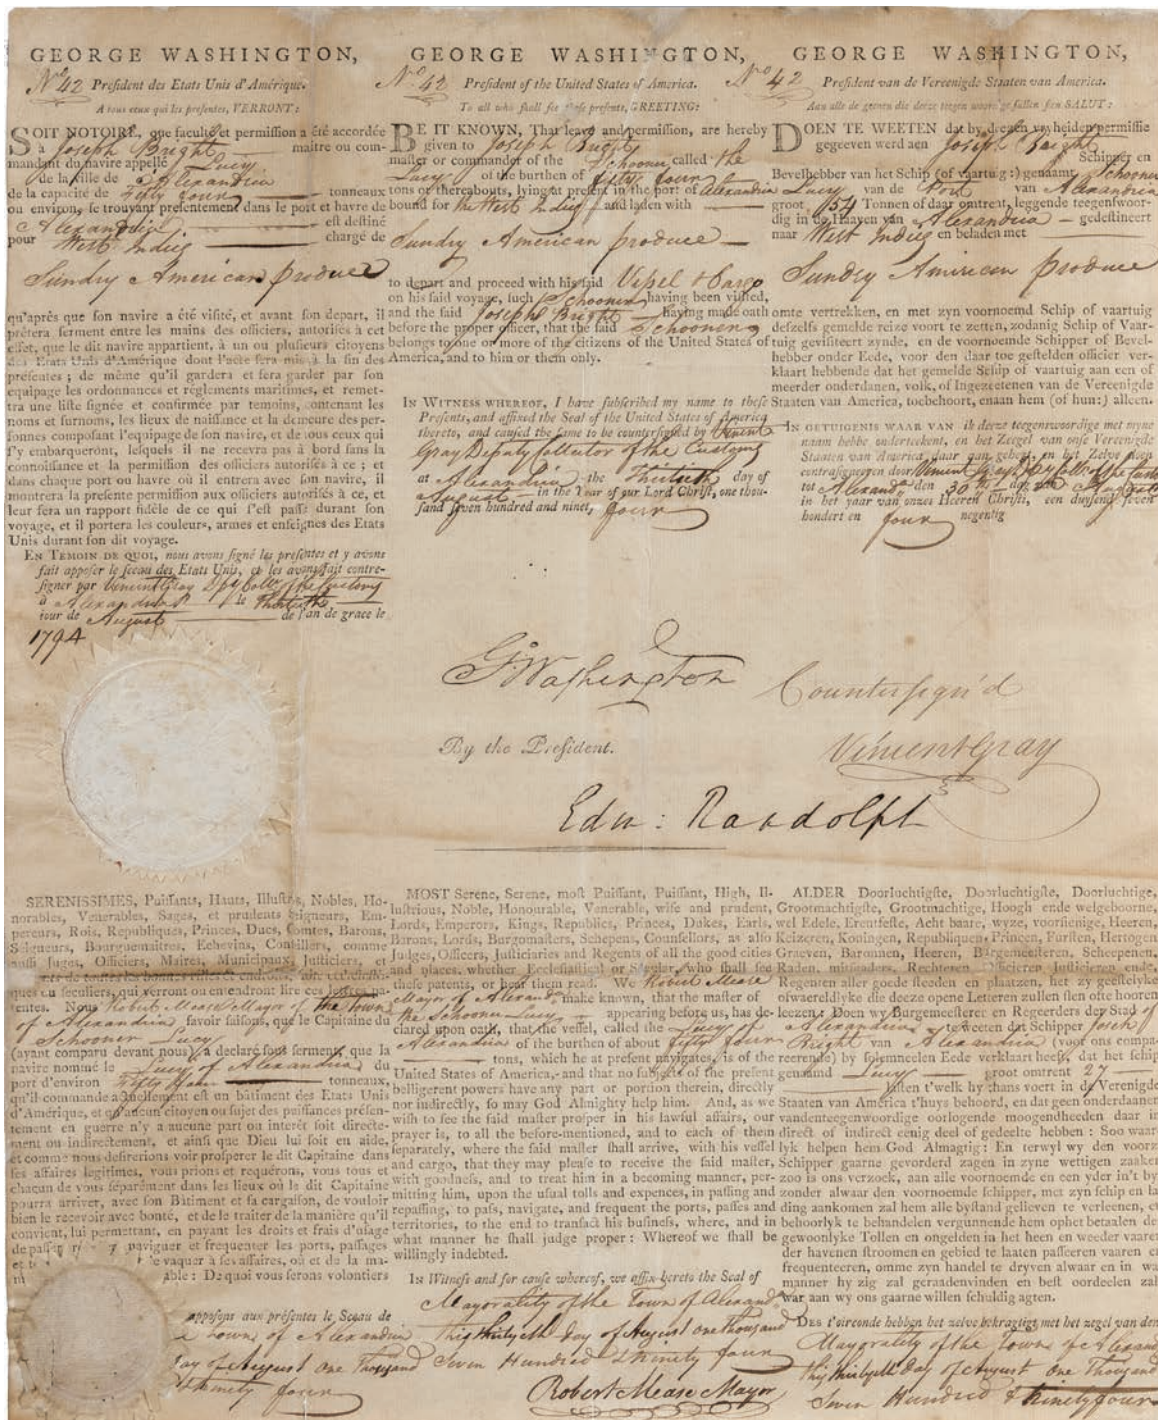 GEORGE WASHINGTON,
No. 42 President des Etats Unis d'Amérique.
A tous ceux qui les presentes, VERRONT:
SOIT NOTOIRE, que faculté et permission a été accordée
à Joseph Bright maitre ou com-
mandant du navire appellé Lucy
de la ville de Alexandria
de la capacité de Fifty four tonneaux
ou environs, se trouvant presentement dans le port et havre de
Alexandria est destiné
pour West Indies chargé de
Sundry American produce
qu'après que son navire a été visité, et avant son depart, il
prêtera serment entre les mains des officiers, autorisés à cet
effet, que le dit navire appartient, à un ou plusieurs citoyens
des Etats Unis d'Amérique dont l'acte sera mis à la fin des
présentes; de même qu'il gardera et fera garder par son
equipage les ordonnances et réglements maritimes, et remet-
tra une liste signée et confirmée par temoins, contenant les
noms et surnoms, les lieux de naissance et la demeure des per-
sonnes composant l'equipage de son navire, et de tous ceux qui
s'y embarqueront, lesquels il ne recevra pas à bord sans la
connoissance et la permission des officiers autorisés à ce; et
dans chaque port ou havre où il entrera avec son navire, il
montrera la presente permission aux officiers autorisés à ce, et
leur fera un rapport fidèle de ce qui s'est passé durant son
voyage, et il portera les couleurs, armes et enseignes des Etats
Unis durant son dit voyage.
EN TEMOIN DE QUOI, nous avons signé les presentes et y avons
fait apposer le sceau des Etats Unis, et les avons fait contre-
signer par Vincent Gray Dpy Collr. of the Customs
à Alexandria le Thirtieth
jour de August de l'an de grace le
1794
GEORGE WASHINGTON,
No. 42 President of the United States of America.
To all who shall see these presents, GREETING:
BE IT KNOWN, That leave and permission, are hereby
given to Joseph Bright
master or commander of the Schooner called the
Lucy of the burthen of fifty four
tons or thereabouts, lying at present in the port of Alexandria
bound for the West Indies and laden with
Sundry American produce
to depart and proceed with his said Vessel & Cargo
on his said voyage, such Schooner having been visited,
and the said Joseph Bright having made oath
before the proper officer, that the said Schooner
belongs to one or more of the citizens of the United States of
America, and to him or them only.
IN WITNESS WHEREOF, I have subscribed my name to these
Presents, and affixed the Seal of the United States of America
thereto, and caused the same to be countersigned by Vincent
Gray Deputy Collector of the Customs
at Alexandria the Thirtieth day of
August in the Year of our Lord Christ, one thou-
sand seven hundred and ninety four
GEORGE WASHINGTON,
No. 42 President van de Vereenigde Staaten van America.
Aan alle de geenen die deeze teegen woordige sullen sien SALUT:
DOEN TE WEETEN dat by deezen vryheid en permissie
gegeeven werd aen Joseph Bright
Schipper en
Bevelhebber van het Schip (of vaartuig:) genaamt Schooner
Lucy van de Port van Alexandria
groot 54 Tonnen of daar omtrent, leggende teegenswoor-
dig in de Haaven van Alexandria gedestineert
naar West Indies en beladen met
Sundry American produce
omte vertrekken, en met zyn voornoemd Schip of vaartuig
deszelfs gemelde reize voort te zetten, zodanig Schip of Vaar-
tuig gevisiteert zynde, en de voornoemde Schipper of Bevel-
hebber onder Eede, voor den daar toe gestelden officier ver-
klaart hebbende dat het gemelde Schip of vaartuig aan een of
meerder onderdanen, volk, of Ingezeetenen van de Vereenigde
Staaten van America, toebehoort, enaan hem (of hun:) alleen.
IN GETUIGENIS WAAR VAN ik deeze teegenwoordige met myne
naam hebbe onderteekent, en het Zeegel van onse Vereenigde
Staaten van America daar aan gehegt, en het Zelve doen
contrasigneeren door Vincent Gray Dpy Collr of the Customs
tot Alexanda. den 30th dag van August
in het yaar van onzes Heeren Christi, een duysend seven
hondert en four negentig
G. Washington
Countersign'd
By the President.
Vincent Gray
Edm: Randolph
SERENISSIMES, Puissants, Hauts, Illustres, Nobles, Ho-
norables, Venerables, Sages, et prudents Seigneurs, Em-
pereurs, Rois, Republiques, Princes, Ducs, Comtes, Barons,
Seigneurs, Bourguemaitres, Echevins, Consillers, comme
aussi Juges, Officiers, Maires, Municipaux, Justiciers, et
ques ou seculiers, qui verront ou entendront lire ces lettres pa-
tentes. Nous Robert Mease Mayor of the Town
of Alexandria favoir faisons, que le Capitaine du
Schooner Lucy
(ayant comparu devant nous) a declaré sous serment, que la
navire nommé le Lucy of Alexandria du
port d'environ Fifty four tonneaux,
qu'il commande actuellement est un bâtiment des Etats Unis
d'Amérique, et qu'aucun citoyen ou sujet des puissances présen-
tement en guerre n'y a aucune part ou interêt soit directe-
ment ou indirectement, et ainsi que Dieu lui soit en aide,
et comme nous desirerions voir prosperer le dit Capitaine dans
ses affaires legitimes, vous prions et requérons, vous tous et
chacun de vous séparément dans les lieux où le dit Capitaine
pourra arriver, avec son Bâtiment et sa cargaison, de vouloir
bien le recevoir avec bonté, et de le traiter de la manière qu'il
convient, lui permettant, en payant les droits et frais d'usage
de passer naviguer et frequenter les ports, passages
vaquer à ses affaires, où et de la ma-
able: De quoi vous serons volontiers
apposons aux présentes le Sceau de
Town of Alexandria
day of August One Thousand
& ninety four
MOST Serene, Serene, most Puissant, Puissant, High, Il-
lustrious, Noble, Honourable, Venerable, wise and prudent,
Lords, Emperors, Kings, Republics, Princes, Dukes, Earls,
Barons, Lords, Burgomasters, Schepens, Counsellors, as also
Judges, Officers, Justiciaries and Regents of all the good cities
and places, whether Ecclesiastical or Secular, who shall see
these patents, or hear them read. We Robert Mease
Mayor of Alexanda. make known, that the master of
the Schooner Lucy appearing before us, has de-
clared upon oath, that the vessel, called the Lucy of
Alexandria of the burthen of about fifty four
tons, which he at present navigates, is of the
United States of America, and that no subjects of the present
belligerent powers have any part or portion therein, directly
nor indirectly, so may God Almighty help him. And, as we
wish to see the said master prosper in his lawful affairs, our
prayer is, to all the before-mentioned, and to each of them
separately, where the said master shall arrive, with his vessel
and cargo, that they may please to receive the said master,
with goodness, and to treat him in a becoming manner, per-
mitting him, upon the usual tolls and expences, in passing and
repassing, to pass, navigate, and frequent the ports, passes and
territories, to the end to transact his business, where, and in
what manner he shall judge proper: Whereof we shall be
willingly indebted.
IN Witness and for cause whereof, we affix hereto the Seal of
Mayorality of the Town of Alexanda.
this thirtyeth day of August one thousand
Seven Hundred & Ninety four
Robert Mease Mayor
ALDER Doorluchtigste, Doorluchtigste, Doorluchtige,
Grootmachtigste, Grootmachtige, Hoogh ende welgeboorne,
wel Edele, Erentfeste, Acht baare, wyze, voorsienige, Heeren,
Keizeren, Koningen, Republiquen, Princen, Fursten, Hertogen
Graeven, Baronnen, Heeren, Burgemeesteren, Scheepenen,
Raden, mitsgaders, Rechteren, Officieren Justicieren ende,
Regenten aller goede steeden en plaatzen, het zy geestelyke
ofwaereldlyke die deeze opene Letteren zullen sien ofte hooren
leezen: Doen wy Burgemeesteren en Regeerders der Stad of
Alexandria te weeten dat Schipper Joseph
Bright van Alexandria (voor ons compa-
reerende) by solemneelen Eede verklaart heeft, dat het schip
genaamd Lucy groot omtrent 27
Lasten t'welk hy thans voert in de Verenigde
Staaten van America t'huys behoord, en dat geen onderdaanen
vandenteegenwoordige oorlogende moogendheeden daar in
direct of indirect eenig deel of gedeelte hebben: Soo waar-
lyk helpen hem God Almagtig: En terwyl wy den voorz
Schipper gaarne gevorderd zagen in zyne wettigen zaaken
zoo is ons verzoek, aan alle voornoemde en een yder in't by-
zonder alwaar den voornoemde schipper, met zyn schip en la-
ding aankomen zal hem alle bystand gelieven te verleenen, et
behoorlyk te behandelen vergunnende hem ophet betaalen de
gewoonlyke Tollen en ongelden in het heen en weeder vaaren
der havenen stroomen en gebied te laaten passeeren vaaren en
frequenteeren, omme zyn handel te dryven alwaar en in wa
manner hy zig zal geraadenvinden en best oordeelen zal
war aan wy ons gaarne willen schuldig agten.
DES t'eironde hebben het zelve bekragtigt met het zegel van den
Mayorality of the Town of Alexand
this thirtyeth day of August One Thousand
Seven Hundred & Ninety four